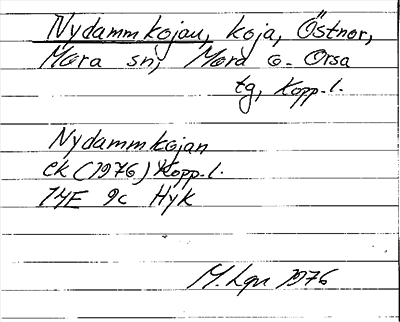 Nydammkojan, koja, Östnor,
Mora sn, Mora o. Orsa
tg, Kopp. l.
Nydammkojan
ek (1976) Kopp. l.
14E 9c Hyk
M. Lgn 1976